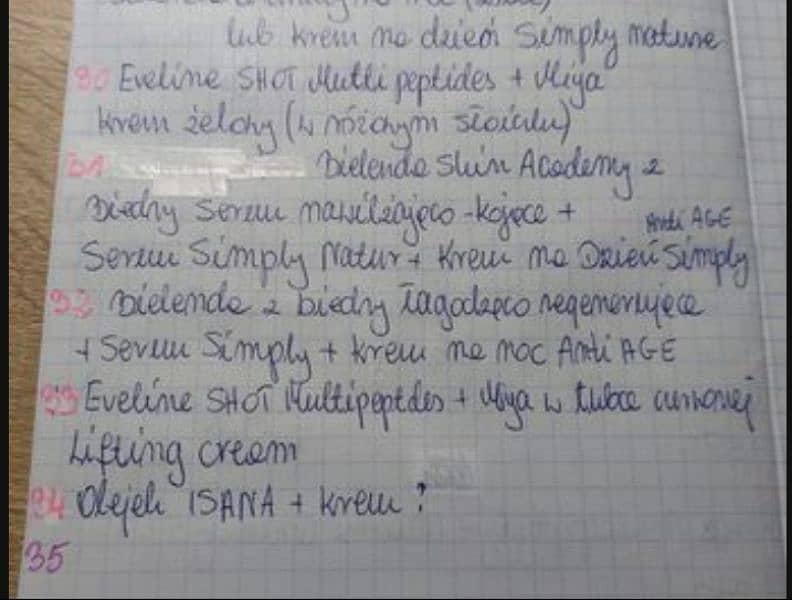 na noc
lub krem na dzień Simply nature
30 Eveline SHOT Multi peptides + Miya
krem żelowy (w różowym słoiczku)
31 Bielenda Skin Academy z
Biedry Serum nawilżająco-kojące +
Serum Simply Natur + Krem na Dzień Simply Anti AGE
32 Bielenda z biedry łagodząco regenerujące
+ Serum Simply + krem na noc Anti AGE
33 Eveline SHOT Multipeptdes + Miya w tubce
Lifting cream
34 Olejek ISANA + krem ?
35